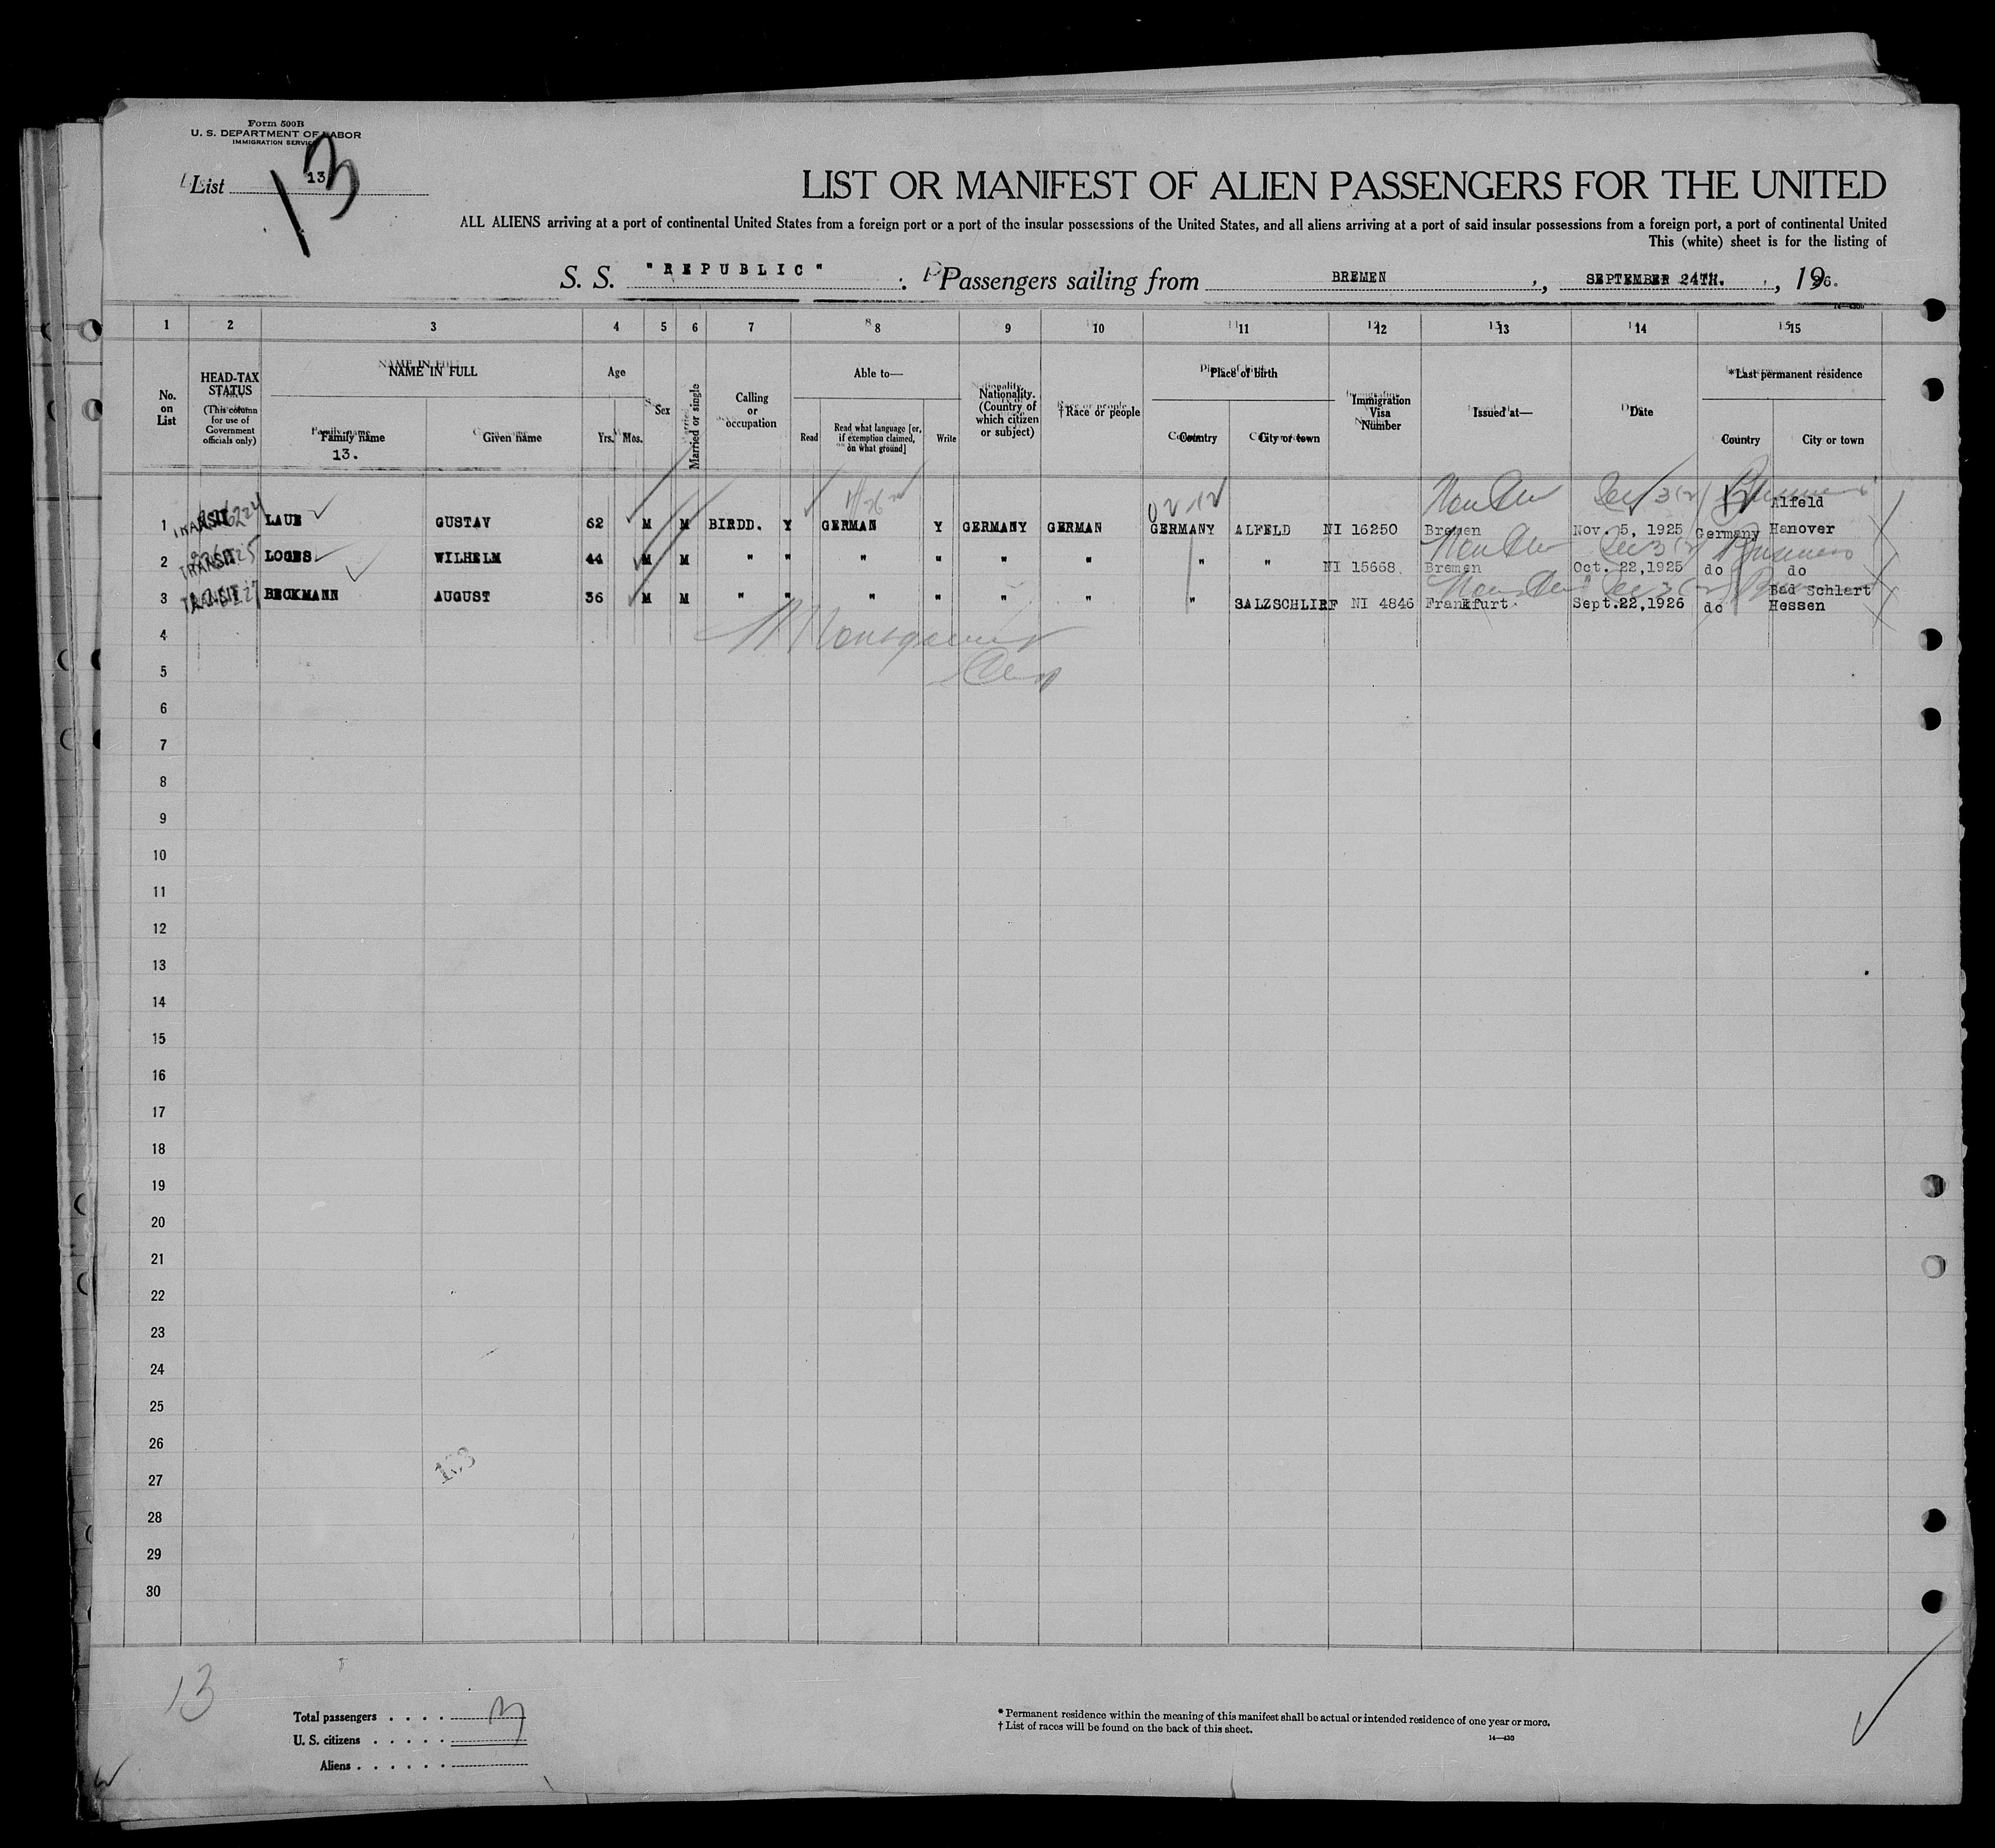 Form 500B
U. S. DEPARTMENT OF LABOR
IMMIGRATION SERVICE
List 13
13
LIST OR MANIFEST OF ALIEN PASSENGERS FOR THE UNITED
ALL ALIENS arriving at a port of continental United States from a foreign port or a port of the insular possessions of the United States, and all aliens arriving at a port of said insular possessions from a foreign port, a port of continental United
This (white) sheet is for the listing of
S. S. "REPUBLIC" Passengers sailing from BREMEN, SEPTEMBER 24TH., 1926.
1 2 3 4 5 6 7 8 9 10 11 12 13 14 15
No. on List
HEAD-TAX STATUS (This column for use of Government officials only)
NAME IN FULL
Family name
Given name
13.
Age
Yrs. Mos.
Sex
Married or single
Calling or occupation
Able to—
Read
Read what language [or, if exemption claimed, on what ground]
Write
Nationality. (Country of which citizen or subject)
†Race or people
Place of birth
Country
City or town
Immigration Visa Number
Issued at—
Date
*Last permanent residence
Country
City or town
Alfeld
1 TRANSIT LAUE GUSTAV 62 M M BIRDD. Y GERMAN Y GERMANY GERMAN GERMANY ALFELD NI 16250 Bremen Nov. 5, 1925 Germany Hanover
2 TRANSIT LOGES WILHELM 44 M M " " " " " " " " NI 15668 Bremen Oct. 22,1925 do do
Bad Schlert
3 TRANSIT BECKMANN AUGUST 36 M M " " " " " " " SALZSCHLIRF NI 4846 Frankfurt Sept.22,1926 do Hessen
4
5
6
7
8
9
10
11
12
13
14
15
16
17
18
19
20
21
22
23
24
25
26
27
28
29
30
13
Total passengers . . . . 3
U. S. citizens . . . . .
Aliens . . . . . .
* Permanent residence within the meaning of this manifest shall be actual or intended residence of one year or more.
† List of races will be found on the back of this sheet.
14—430